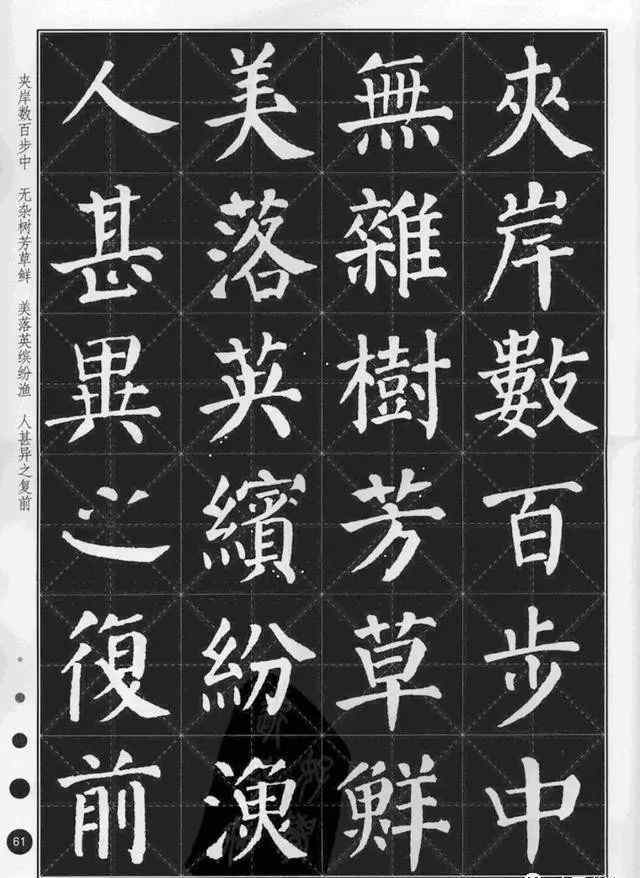 夾岸數百步中
無雜樹芳草鮮
美落英繽紛漁
人甚異之復前
夹岸数百步中 无杂树芳草鲜 美落英缤纷渔 人甚异之复前
61